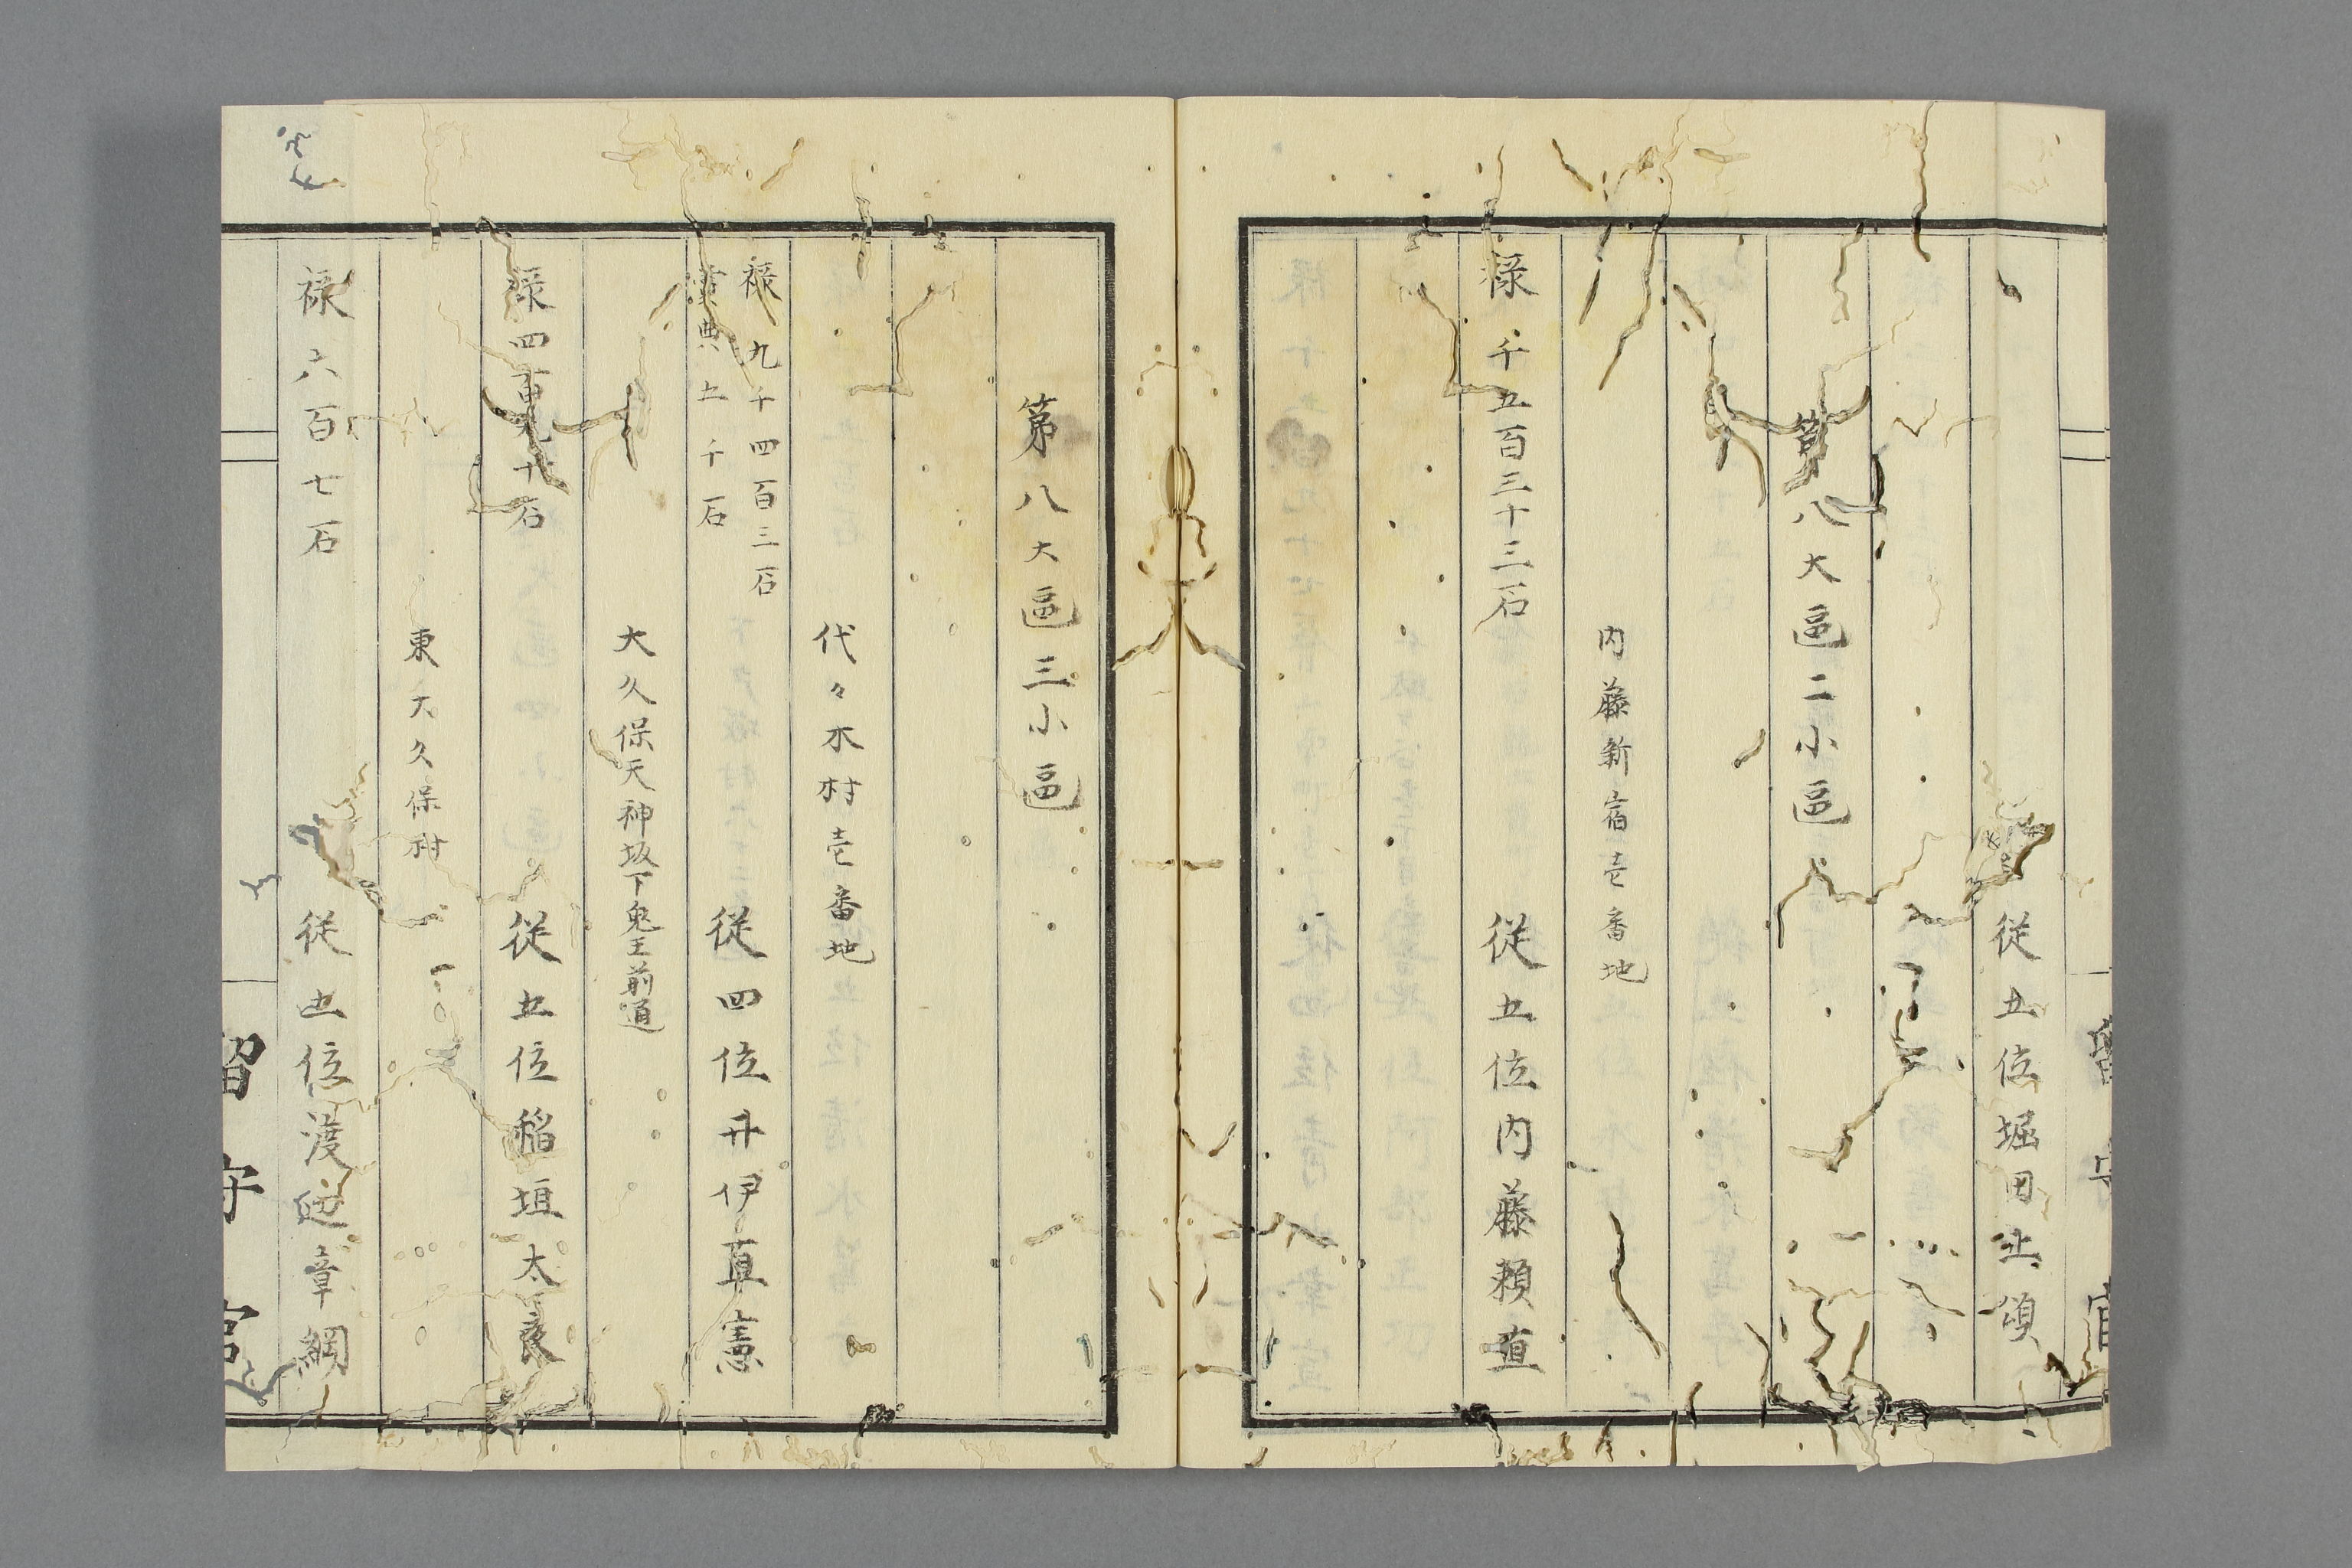 従五位堀田正頌
第八大區二小區
内藤新宿壱番地
禄千五百三十三石
従五位内藤頼直
第八大區三小區
代々木村壱番地
禄九千四百三石
賞典上千石
従四位井伊直憲
大久保天神坂下鬼王前通
禄四百九十石
従五位稲垣太良
東大久保村
禄六百七石
従五位渡邉章綱
留守官